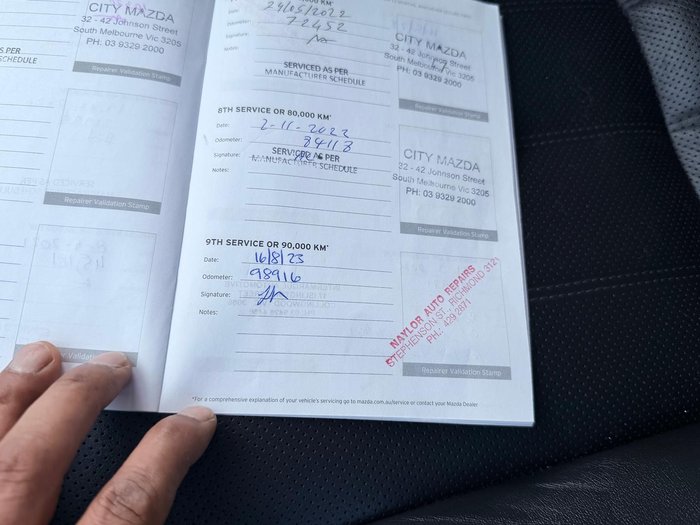 CITY MAZDA
32 - 42 Johnson Street
South Melbourne Vic 3205
PH: 03 9329 2000
S PER
SCHEDULE
Repairer Validation Stamp
Repairer Validation Stamp
Date: 24/05/2022
Odometer: 72452
Signature:
Notes:
SERVICED AS PER
MANUFACTURER SCHEDULE
CITY MAZDA
32 - 42 Johnson Street
South Melbourne Vic 3205
PH: 03 9329 2000
Repairer Validation Stamp
8TH SERVICE OR 80,000 KM*
Date: 2-11-2022
Odometer: 84118
Signature: SERVICED AS PER
Notes: MANUFACTURER SCHEDULE
CITY MAZDA
32 - 42 Johnson Street
South Melbourne Vic 3205
PH: 03 9329 2000
Repairer Validation Stamp
9TH SERVICE OR 90,000 KM*
Date: 16/8/23
Odometer: 98916
Signature:
Notes:
NAYLOR AUTO REPAIRS
STEPHENSON ST. RICHMOND 3121
PH.: 429 2871
Repairer Validation Stamp
*For a comprehensive explanation of your vehicle's servicing go to mazda.com.au/service or contact your Mazda Dealer